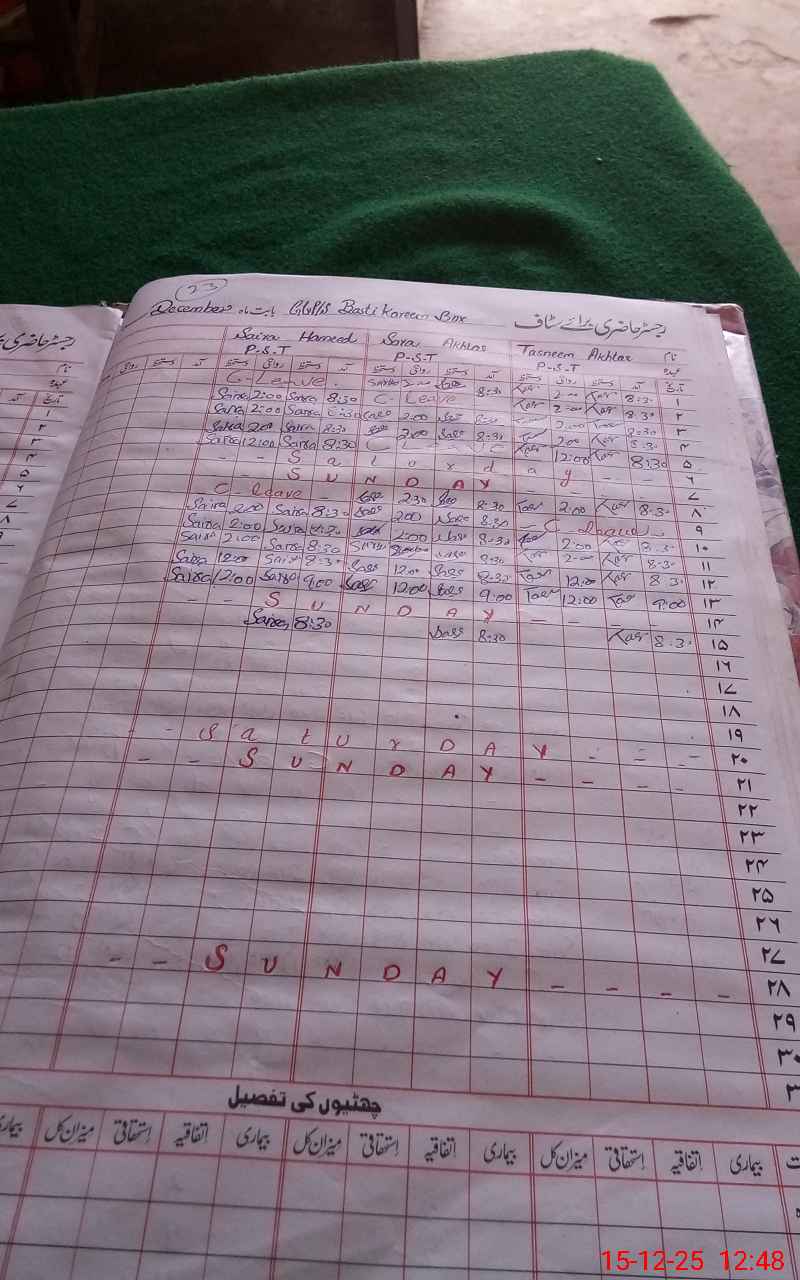 23
December بابت ماہ GGP/S Basti Kareem Bux رجسٹر حاضری برائے سٹاف
Saira Hameed Sara Akhtar Tasneem Akhtar نام
P-S-T P-S-T P-S-T عہدہ
دستخط روانگی دستخط آمد دستخط روانگی دستخط آمد دستخط روانگی دستخط آمد تاریخ
C-Leave. 2:00 8:30 Tas 2:00 Tas 8:30 ۱
Saira 2:00 Saira 8:30 C-Leave Tas 2:00 Tas 8:30 ۲
Saira 2:00 Saira 8:30 2:00 8:30 2:00 Tas 8:30 ۳
Saira 2:00 Saira 8:30 2:00 Sara 8:30 Tas 2:00 Tas 8:30 ۴
Saira 12:00 Saira 8:30 Tas 12:00 Tas 8:30 ۵
- - S a t u r d a y - - ۶
S U N D A Y - - ۷
C-leave - 2:30 8:30 Tas 2:00 Tas 8:30 ۸
Saira 2:00 Saira 8:30 Sara 2:00 Sara 8:30 - C-leave - ۹
Saira 2:00 Saira 8:30 2:00 Sara 8:30 Tas 2:00 Tas 8:30 ۱۰
Saira 2:00 Saira 8:30 Sara 8:30 Tas 2:00 Tas 8:30 ۱۱
Saira 12:00 Saira 8:30 Sara 12:00 Sara 8:30 Tas 12:00 Tas 8:30 ۱۲
Saira 12:00 Saira 9:00 Sara 12:00 Sara 9:00 Tas 12:00 Tas 9:00 ۱۳
S U N D A Y - - - - ۱۴
Saira 8:30 Sara 8:30 Tas 8:30 ۱۵
۱۶
۱۷
۱۸
۱۹
- - S a t U r D A Y - - - ۲۰
- - S U N D A Y - - - - ۲۱
۲۲
۲۳
۲۴
۲۵
۲۶
۲۷
- - S U N D A Y - - - - ۲۸
۲۹
۳۰
۳
چھٹیوں کی تفصیل
بیماری اتفاقیہ استحقاقی میزان کل بیماری اتفاقیہ استحقاقی میزان کل بیماری اتفاقیہ استحقاقی میزان کل
15-12-25 12:48